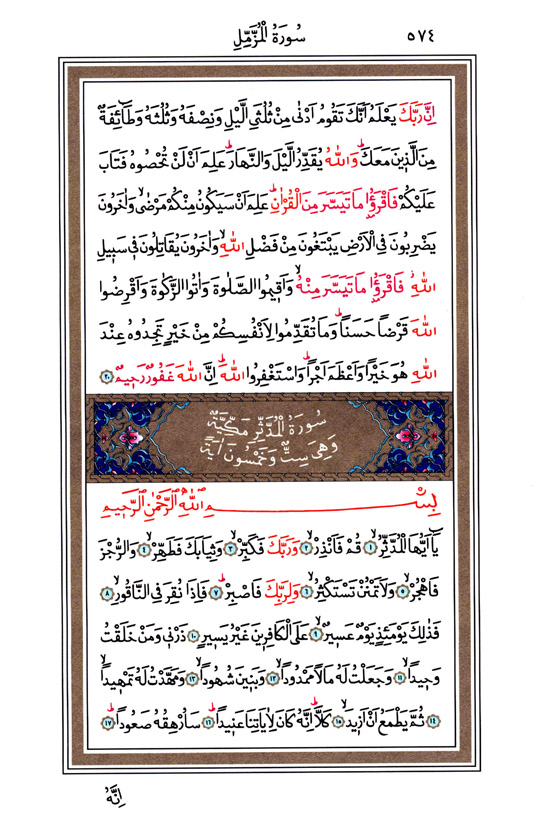 ٥٧٤
سُورَةُ الْمُزَّمِّلِ
اِنَّ رَبَّكَ يَعْلَمُ اَنَّكَ تَقُومُ اَدْنٰى مِنْ ثُلُثَيِ الَّيْلِ وَنِصْفَهُ وَثُلُثَهُ وَطَٓائِفَةٌ
مِنَ الَّذٖينَ مَعَكَؕ وَاللّٰهُ يُقَدِّرُ الَّيْلَ وَالنَّهَارَؕ عَلِمَ اَنْ لَنْ تُحْصُوهُ فَتَابَ
عَلَيْكُمْ فَاقْرَؤُ۫ا مَا تَيَسَّرَ مِنَ الْقُرْاٰنِؕ عَلِمَ اَنْ سَيَكُونُ مِنْكُمْ مَرْضٰىۙ وَاٰخَرُونَ
يَضْرِبُونَ فِي الْاَرْضِ يَبْتَغُونَ مِنْ فَضْلِ اللّٰهِۙ وَاٰخَرُونَ يُقَاتِلُونَ فٖي سَبٖيلِ
اللّٰهِؗ فَاقْرَؤُ۫ا مَا تَيَسَّرَ مِنْهُۙ وَاَقٖيمُوا الصَّلٰوةَ وَاٰتُوا الزَّكٰوةَ وَاَقْرِضُوا
اللّٰهَ قَرْضاً حَسَناًؕ وَمَا تُقَدِّمُوا لِاَنْفُسِكُمْ مِنْ خَيْرٍ تَجِدُوهُ عِنْدَ
اللّٰهِ هُوَ خَيْراً وَاَعْظَمَ اَجْراًؕ وَاسْتَغْفِرُوا اللّٰهَؕ اِنَّ اللّٰهَ غَفُورٌ رَحٖيمٌ ٢٠
سُورَةُ الْمُدَّثِّرِ مَكِّيَّةٌ
وَهِيَ سِتٌّ وَخَمْسُونَ اٰيَةً
بِسْمِ اللّٰهِ الرَّحْمٰنِ الرَّحٖيمِ
يَٓا اَيُّهَا الْمُدَّثِّرُۙ ١ قُمْ فَاَنْذِرْۙ ٢ وَرَبَّكَ فَكَبِّرْۙ ٣ وَثِيَابَكَ فَطَهِّرْۙ ٤ وَالرُّجْزَ
فَاهْجُرْۙ ٥ وَلَا تَمْنُنْ تَسْتَكْثِرُۙ ٦ وَلِرَبِّكَ فَاصْبِرْؕ ٧ فَاِذَا نُقِرَ فِي النَّاقُورِۙ ٨
فَذٰلِكَ يَوْمَئِذٍ يَوْمٌ عَسٖيرٌۙ ٩ عَلَى الْكَافِرٖينَ غَيْرُ يَسٖيرٍ ١٠ ذَرْنٖي وَمَنْ خَلَقْتُ
وَحٖيداًۙ ١١ وَجَعَلْتُ لَهُ مَالاً مَمْدُوداًۙ ١٢ وَبَنٖينَ شُهُوداًۙ ١٣ وَمَهَّدْتُ لَهُ تَمْهٖيداًۙ
١٤ ثُمَّ يَطْمَعُ اَنْ اَزٖيدَۙ ١٥ كَلَّاؕ اِنَّهُ كَانَ لِاٰيَاتِنَا عَنٖيداًؕ ١٦ سَاُرْهِقُهُ صَعُوداًؕ ١٧
اِنَّهُ